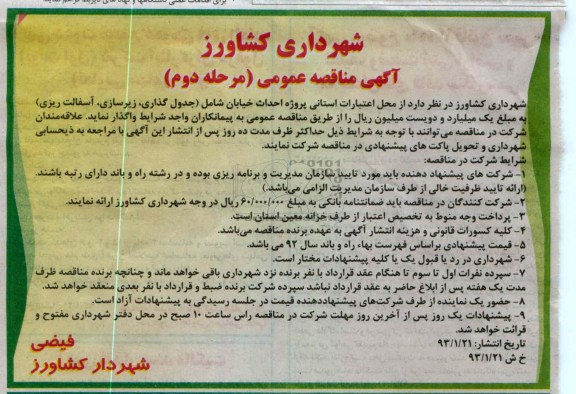 شهرداری کشاورز
آگهی مناقصه عمومی (مرحله دوم)
شهرداری کشاورز در نظر دارد از محل اعتبارات استانی پروژه احداث خیابان شامل (جدول گذاری، زیرسازی، آسفالت ریزی)
به مبلغ یک میلیارد و دویست میلیون ریال را از طریق مناقصه عمومی به پیمانکاران واجد شرایط واگذار نماید. علاقه‌مندان
شرکت در مناقصه می‌توانند با توجه به شرایط ذیل حداکثر ظرف مدت ده روز پس از انتشار این آگهی با مراجعه به ذیحسابی
شهرداری و تحویل پاکت های پیشنهادی در مناقصه شرکت نمایند.
شرایط شرکت در مناقصه:
۱- شرکت های پیشنهاد دهنده باید مورد تایید سازمان مدیریت و برنامه ریزی بوده و در رشته راه و باند دارای رتبه باشند.
(ارائه تایید ظرفیت خالی از طرف سازمان مدیریت الزامی می‌باشد.)
۲- شرکت کنندگان در مناقصه باید ضمانتنامه بانکی به مبلغ ۶۰/۰۰۰/۰۰۰ ریال در وجه شهرداری کشاورز ارائه نمایند.
۳- پرداخت وجه منوط به تخصیص اعتبار از طرف خزانه معین استان است.
۴- کلیه کسورات قانونی و هزینه انتشار آگهی به عهده برنده مناقصه می‌باشد.
۵- قیمت پیشنهادی براساس فهرست بهاء راه و باند سال ۹۲ می باشد.
۶- شهرداری در رد یا قبول یک یا کلیه پیشنهادات مختار است.
۷- سپرده نفرات اول تا سوم تا هنگام عقد قرارداد با نفر برنده نزد شهرداری باقی خواهد ماند و چنانچه برنده مناقصه ظرف
مدت یک هفته پس از ابلاغ حاضر به عقد قرارداد نباشد سپرده شرکت برنده ضبط و قرارداد با نفر بعدی منعقد خواهد شد.
۸- حضور یک نماینده از طرف شرکت‌های پیشنهاددهنده قیمت در جلسه رسیدگی به پیشنهادات آزاد است.
۹- پیشنهادات یک روز پس از آخرین روز مهلت شرکت در مناقصه راس ساعت ۱۰ صبح در محل دفتر شهرداری مفتوح و
قرائت خواهد شد.
تاریخ انتشار: ۹۳/۱/۲۱
خ ش ۹۳/۱/۲۱
فیضی
شهردار کشاورز